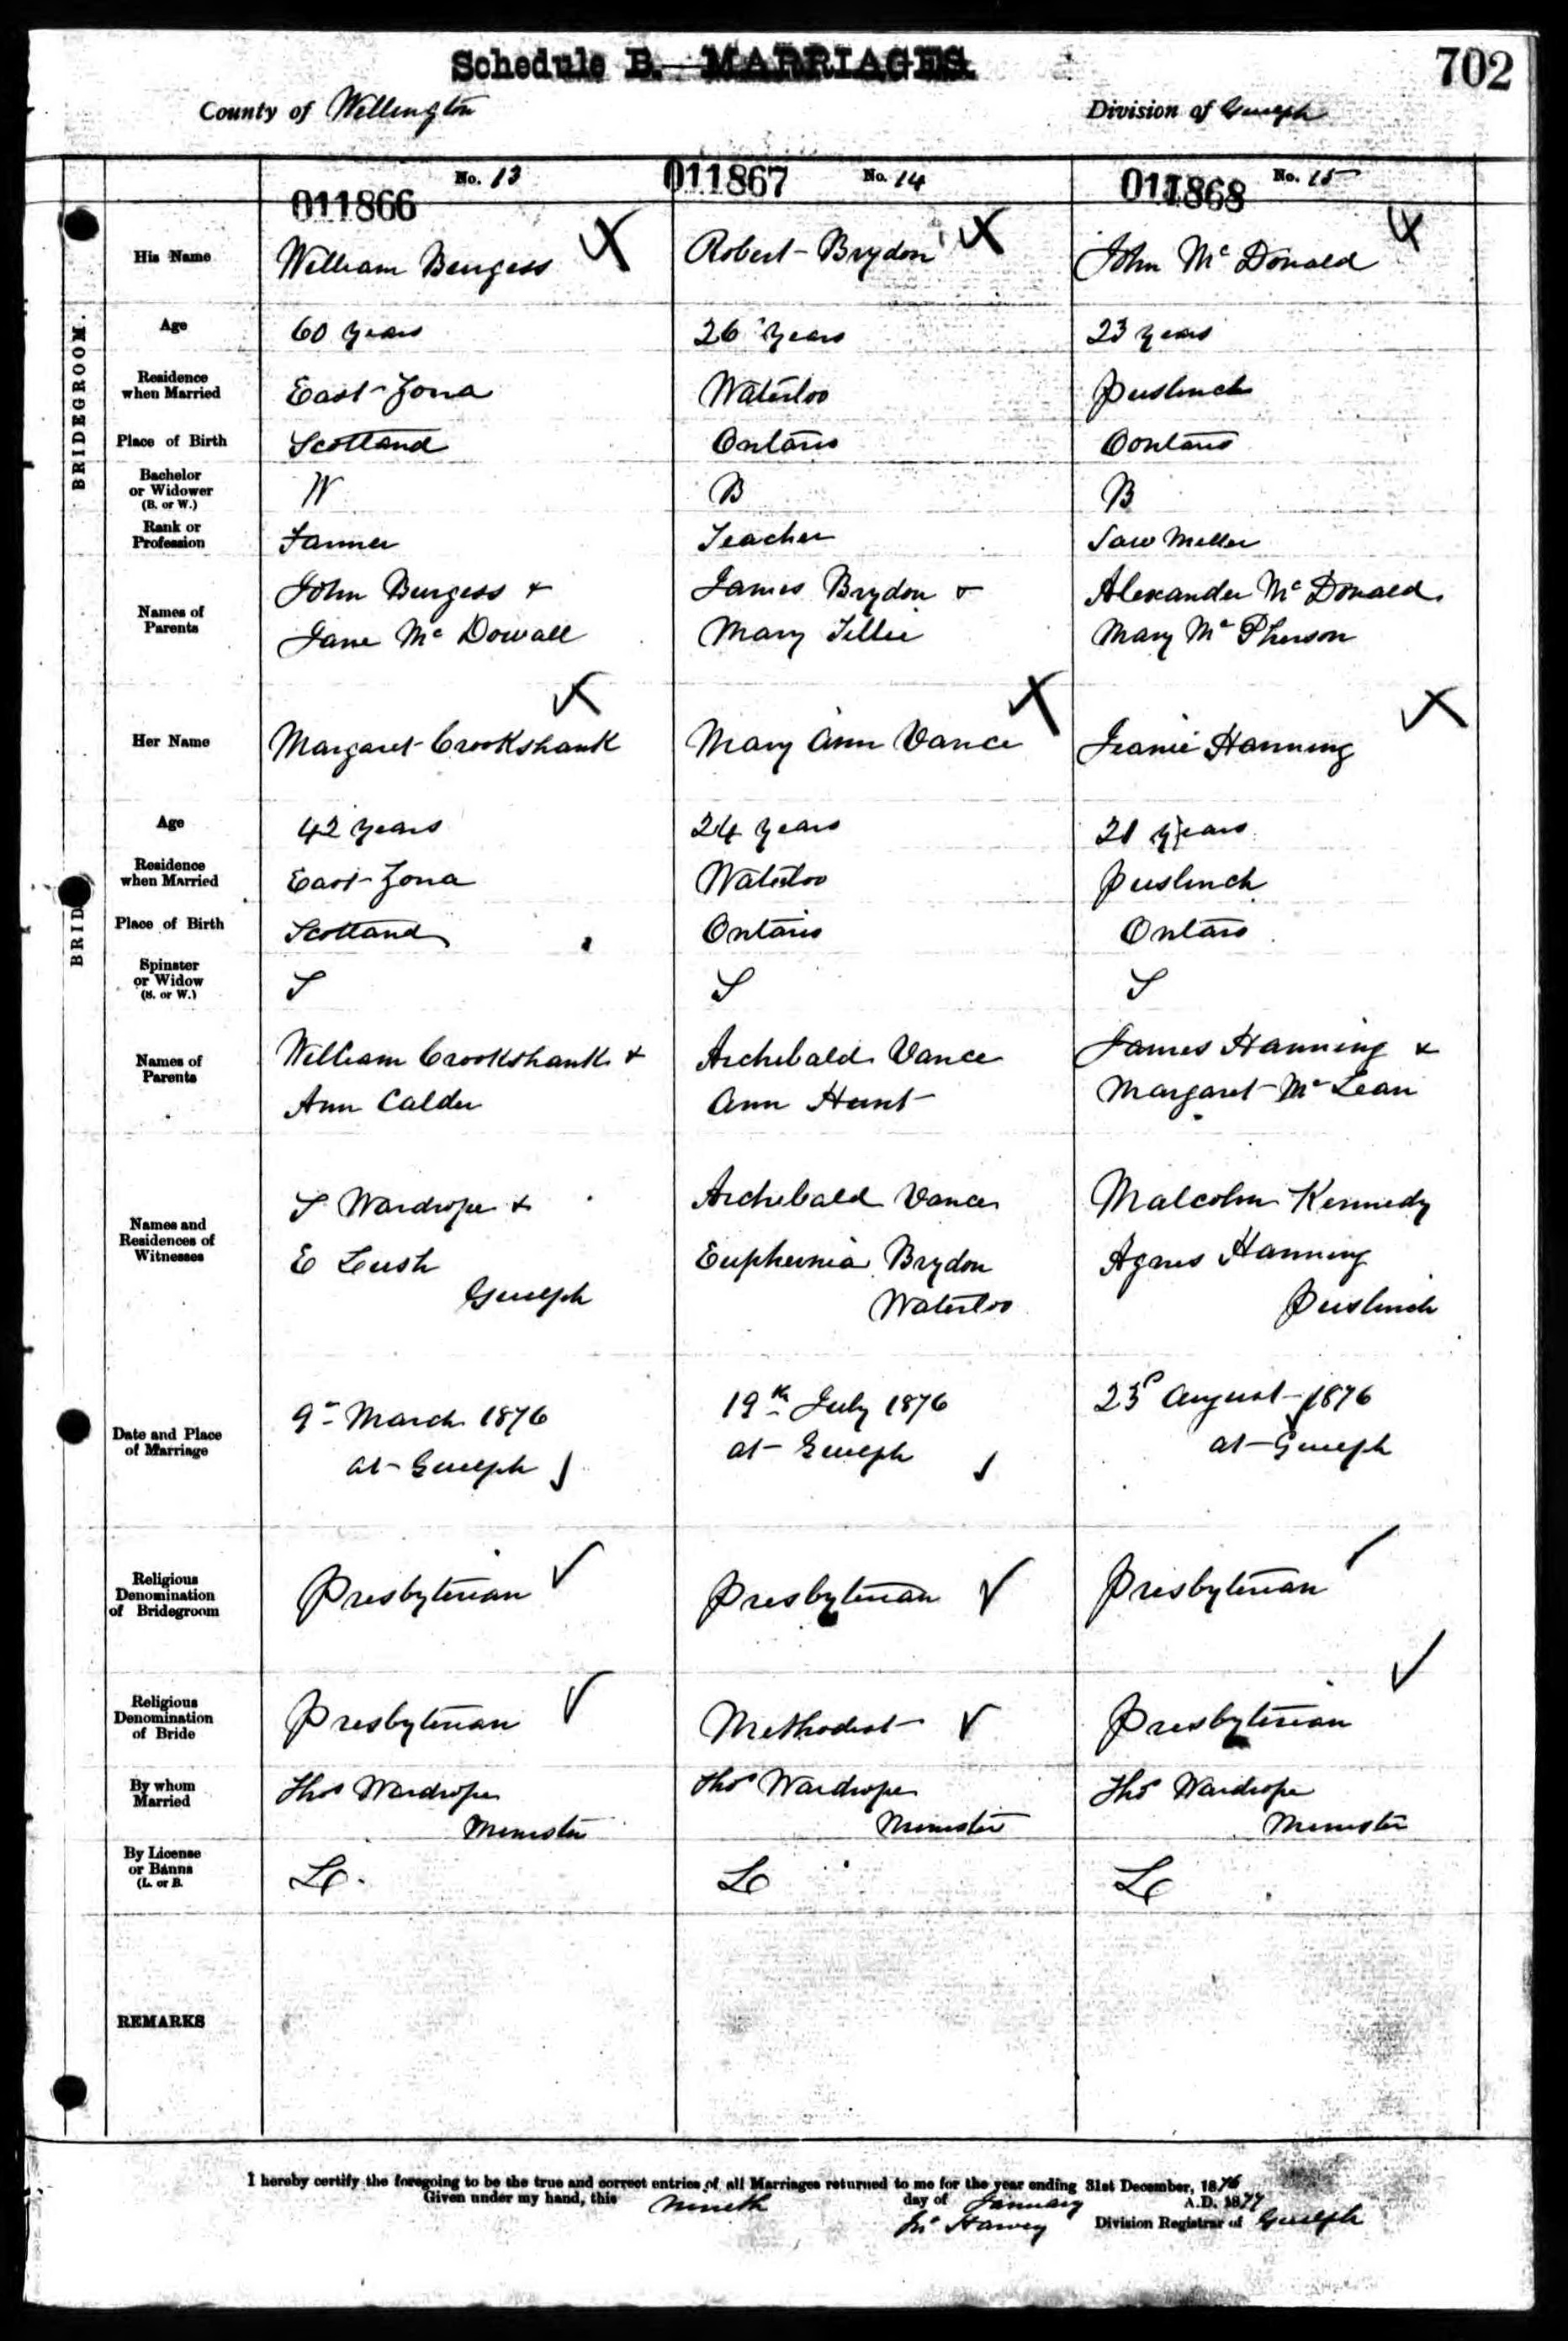 Schedule B.—MARRIAGES.
702
County of Wellington
Division of Guelph
No. 13
No. 14
No. 15
011866
011867
011868
BRIDEGROOM.
His Name
William Burgess
Robert Brydon
John McDonald
Age
60 years
26 years
23 years
Residence
when Married
East Zorra
Waterloo
Puslinch
Place of Birth
Scotland
Ontario
Oontario
Bachelor
or Widower
(B. or W.)
W
B
B
Rank or
Profession
Farmer
Teacher
Saw Miller
Names of
Parents
John Burgess +
Jane McDowall
James Brydon +
Mary Tillie
Alexander McDonald
Mary McPherson
BRID
Her Name
Margaret Crookshank
Mary Ann Vance
Jeanie Hanning
Age
42 years
24 years
21 years
Residence
when Married
East Zorra
Waterloo
Puslinch
Place of Birth
Scotland
Ontario
Ontaro
Spinster
or Widow
(S. or W.)
S
S
S
Names of
Parents
William Crookshank +
Ann Calder
Archibald Vance
Ann Hunt
James Hanning +
Margaret McLean
Names and
Residences of
Witnesses
S Wardrope +
E Lush
Guelph
Archibald Vance
Euphemia Brydon
Waterloo
Malcolm Kennedy
Agnes Hanning
Puslinch
Date and Place
of Marriage
9th March 1876
at Guelph
19th July 1876
at Guelph
23d August 1876
at Guelph
Religious
Denomination
of Bridegroom
Presbyterian
Presbyterian
Presbyterian
Religious
Denomination
of Bride
Presbyterian
Methodist
Presbyterian
By whom
Married
Thos Wardrope
Minister
Thos Wardrope
Minister
Thos Wardrope
Minister
By License
or Banns
(L. or B.
Lc.
Lc
Lc
REMARKS
I hereby certify the foregoing to be the true and correct entries of all Marriages returned to me for the year ending 31st December, 1876
Given under my hand, this nineth day of January A.D. 1877
Jno Harvey Division Registrar of Guelph